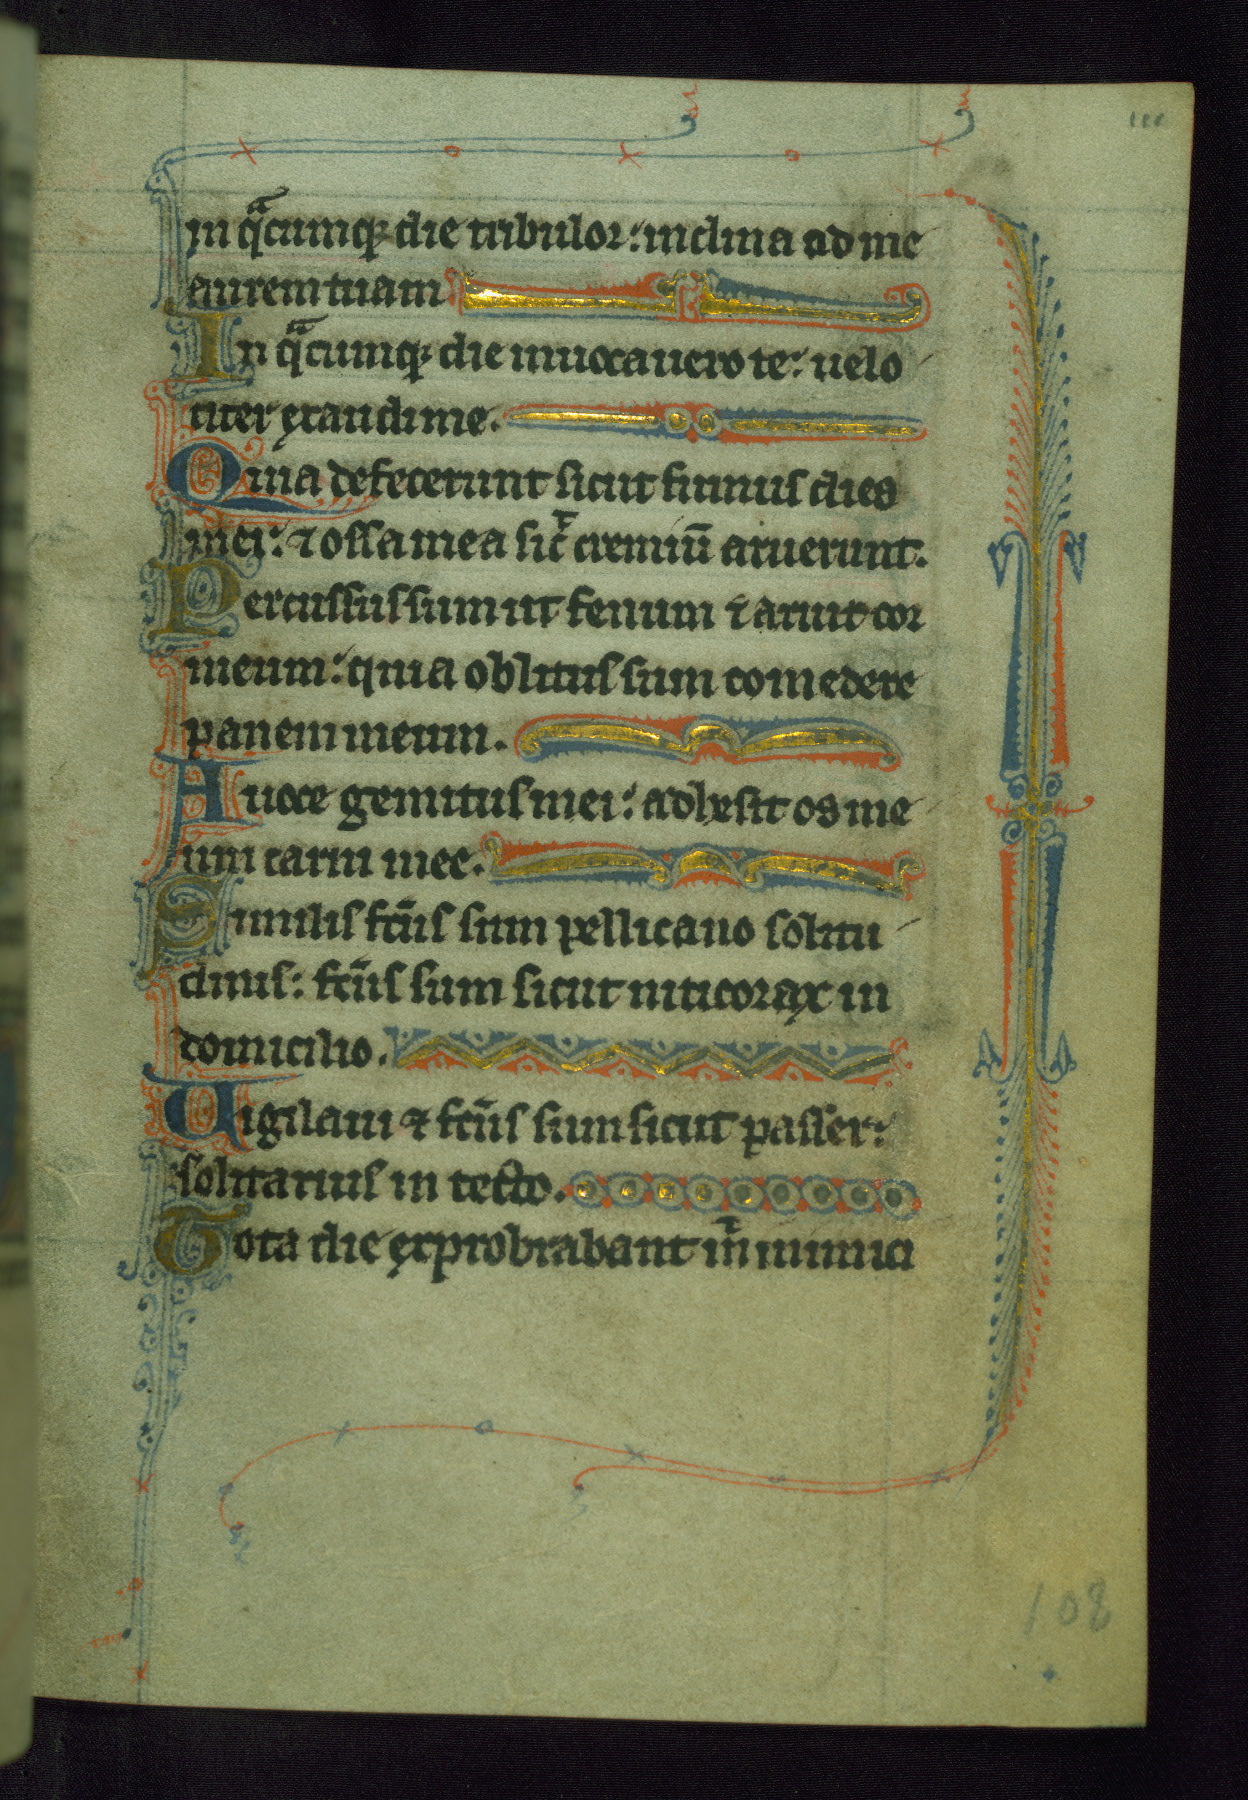 in qͣcumqꝫ die tribulor: inclina ad me
aurem tuam
In qͣcumqꝫ die inuocauero te: uelo
citer exaudi me.
Quia defecerunt sicut fumus dies
mei: ⁊ ossa mea sic̄ cremiū aruerunt.
Percussus sum ut fenum ⁊ aruit cor
meum: quia oblitus sum comedere
panem meum.
A uoce gemitus mei: adhesit os me
um carni mee.
Similis fc̄us sum pellicano solitu
dinis: fc̄us sum sicut niticorax in
domicilio.
Uigilaui ⁊ fc̄us sum sicut passer:
solitarius in tecto.
Tota die exprobrabant m̄ inimici
108